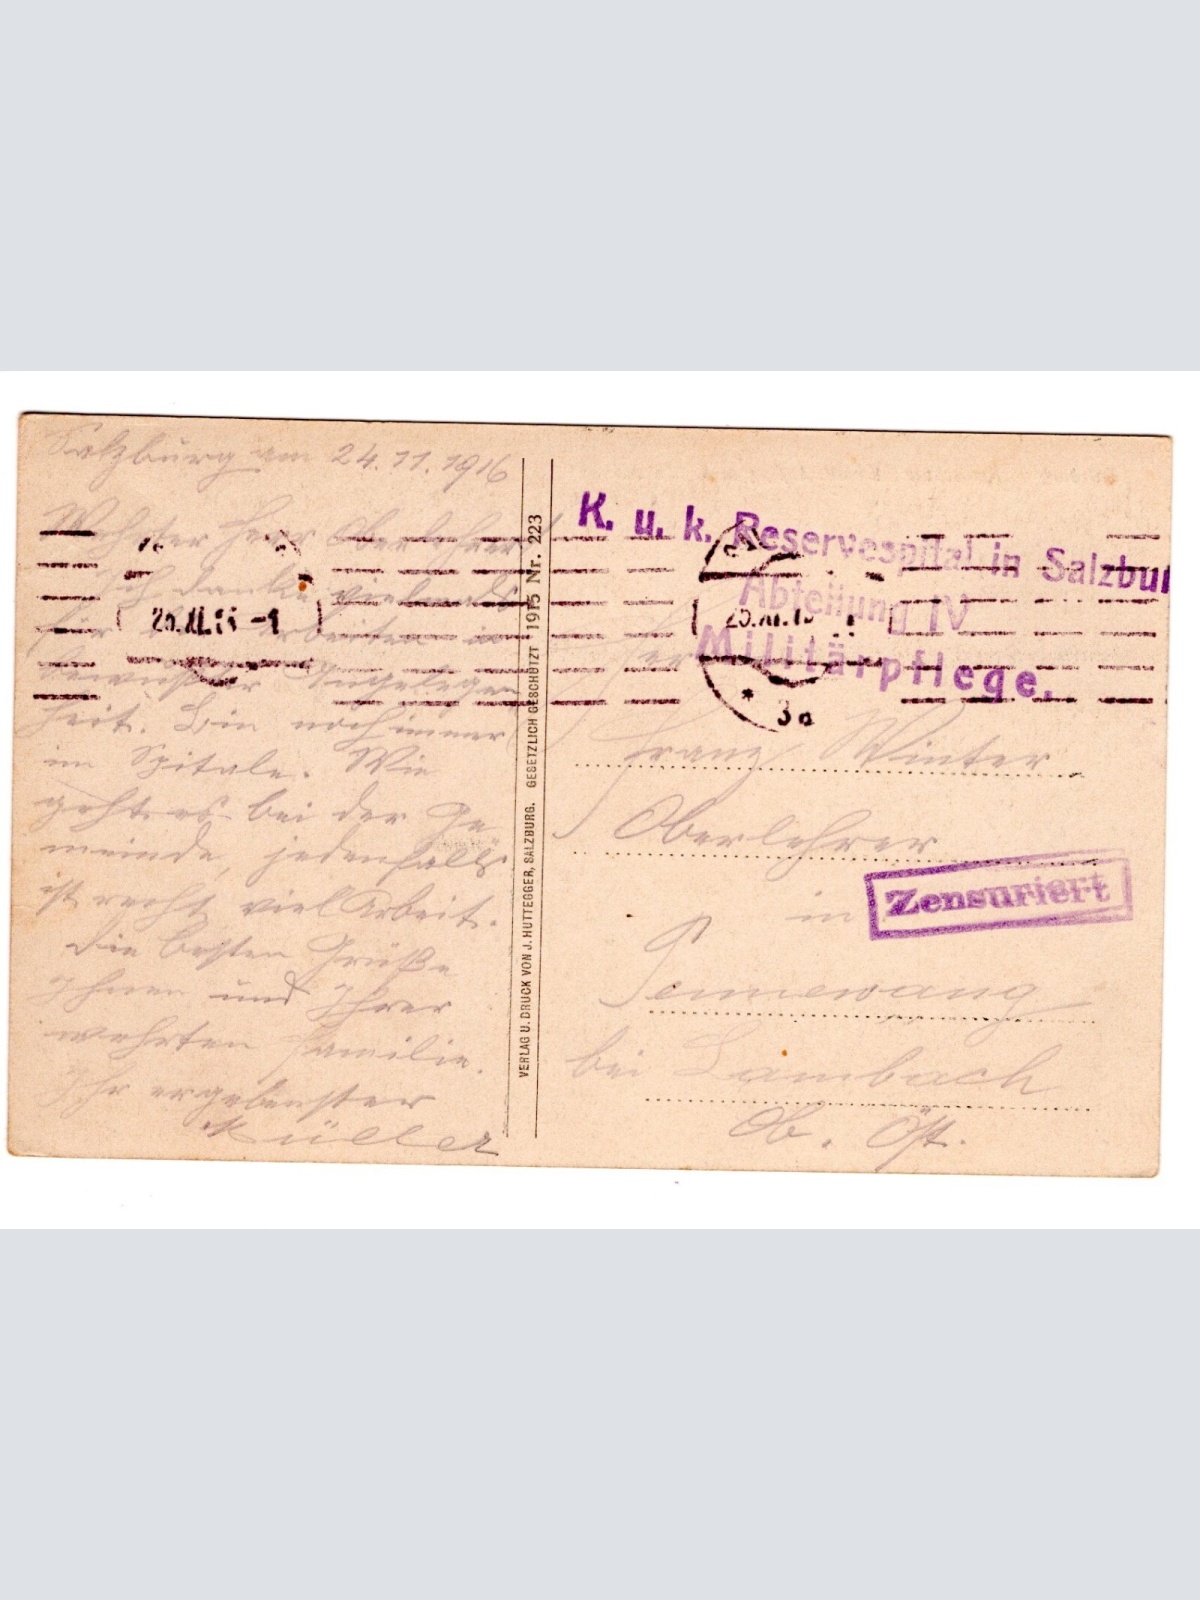 Salzburg am 24.11.1916
Wehrter Herr Oberlehrer
ich danke vielmals
für arbeiten in
bewußter Angelegen
heit. Bin noch immer
im Spitale. Wie
geht es bei der Ge
meinde, jedenfalls
ist recht viel Arbeit.
Die besten Grüße
Ihnen und Ihrer
wehrten Familie.
Ihr ergebenster
Müller
VERLAG U. DRUCK VON J. HUTTEGGER, SALZBURG. GESETZLICH GESCHÜTZT 1915 Nr. 223
K. u. k. Reservespital in Salzbu
Abteilung IV
Militärpflege.
25.XI.1 -1
25.XI.1
* 3a
Franz Winter
Oberlehrer
in
Zensuriert
Pennewang
bei Lambach
Ob. Öst.